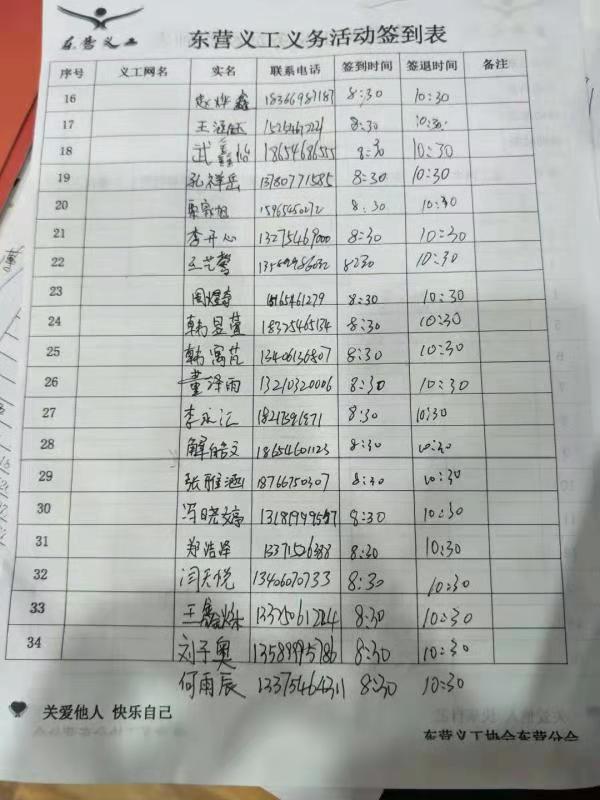 东营义工
东营义工义务活动签到表
序号 义工网名 实名 联系电话 签到时间 签退时间 备注
16 赵烨鑫 18366987187 8:30 10:30
17 王涵钰 8:30 10:30
18 武 18654686555 8:30 10:30
19 孔祥岳 13780771585 8:30 10:30
20 15965450272 8:30 10:30
21 李开心 13275469000 8:30 10:30
22 王艺莺 8:30 10:30
23 周煜 8:30 10:30
24 韩昱萱 18325465134 8:30 10:30
25 韩寓芃 13406136807 8:30 10:30
26 董泽雨 13210320006 8:30 10:30
27 李永汇 8:30 10:30
28 解皓文 18654601123 8:30 10:30
29 张雅涵 18766750307 8:30 10:30
30 冯晓婷 8:30 10:30
31 郑浩泽 8:30 10:30
32 闫天悦 13406070733 8:30 10:30
33 王 8:30 10:30
34 刘子奥 13589995786 8:30 10:30
何雨辰 13375464311 8:30 10:30
关爱他人 快乐自己
东营义工协会东营分会